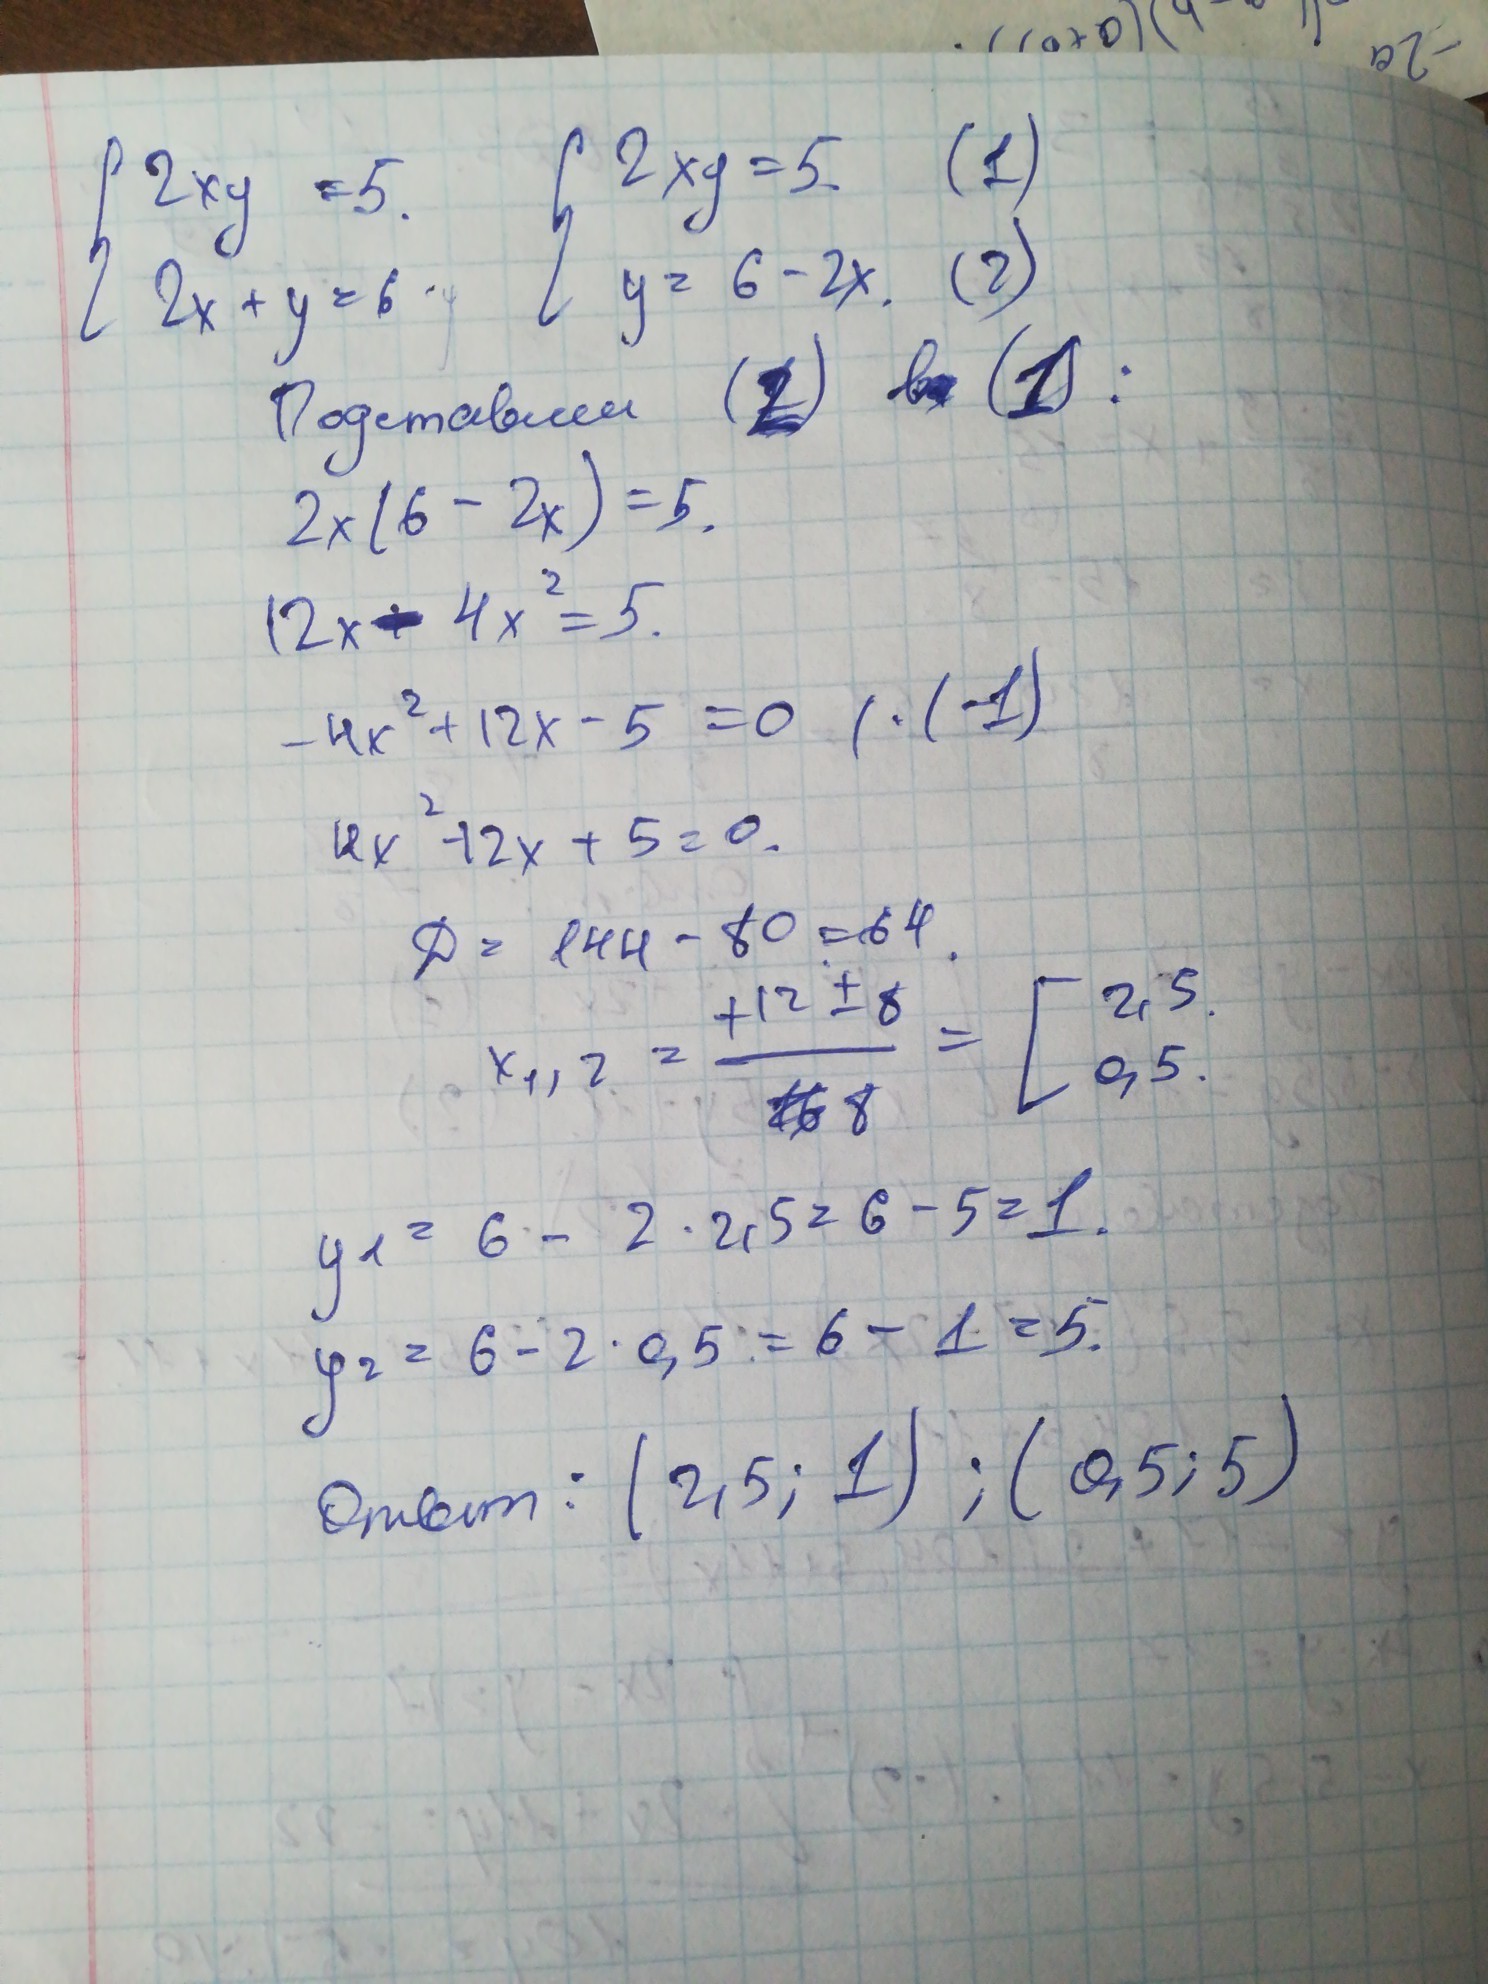 -2a
{ 2xy = 5. { 2xy = 5. (1)
2x + y = 6 y = 6 - 2x. (2)
Подставим (2) в (1):
2x(6 - 2x) = 5.
12x - 4x² = 5.
-4x² + 12x - 5 = 0 | · (-1)
4x² - 12x + 5 = 0.
D = 144 - 80 = 64.
x₁,₂ = (+12 ± 8) / 8 = [ 2,5. 0,5.
y₁ = 6 - 2 · 2,5 = 6 - 5 = 1.
y₂ = 6 - 2 · 0,5 = 6 - 1 = 5.
Ответ: (2,5; 1) ; (0,5; 5)